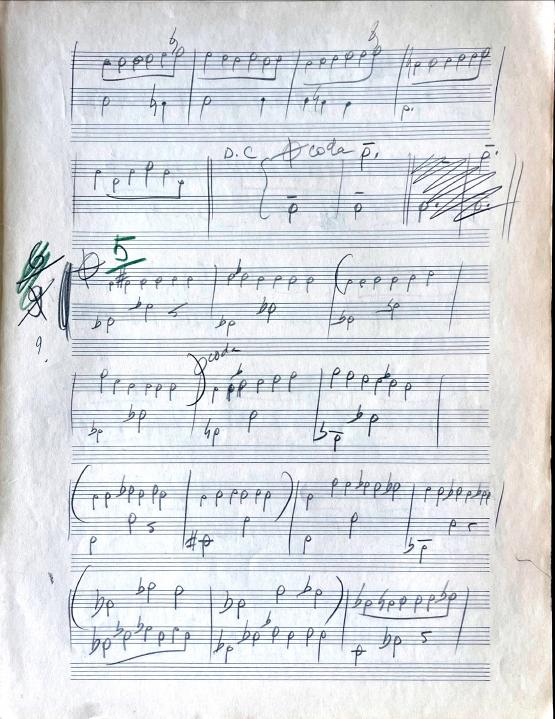 D.C coda
5
coda